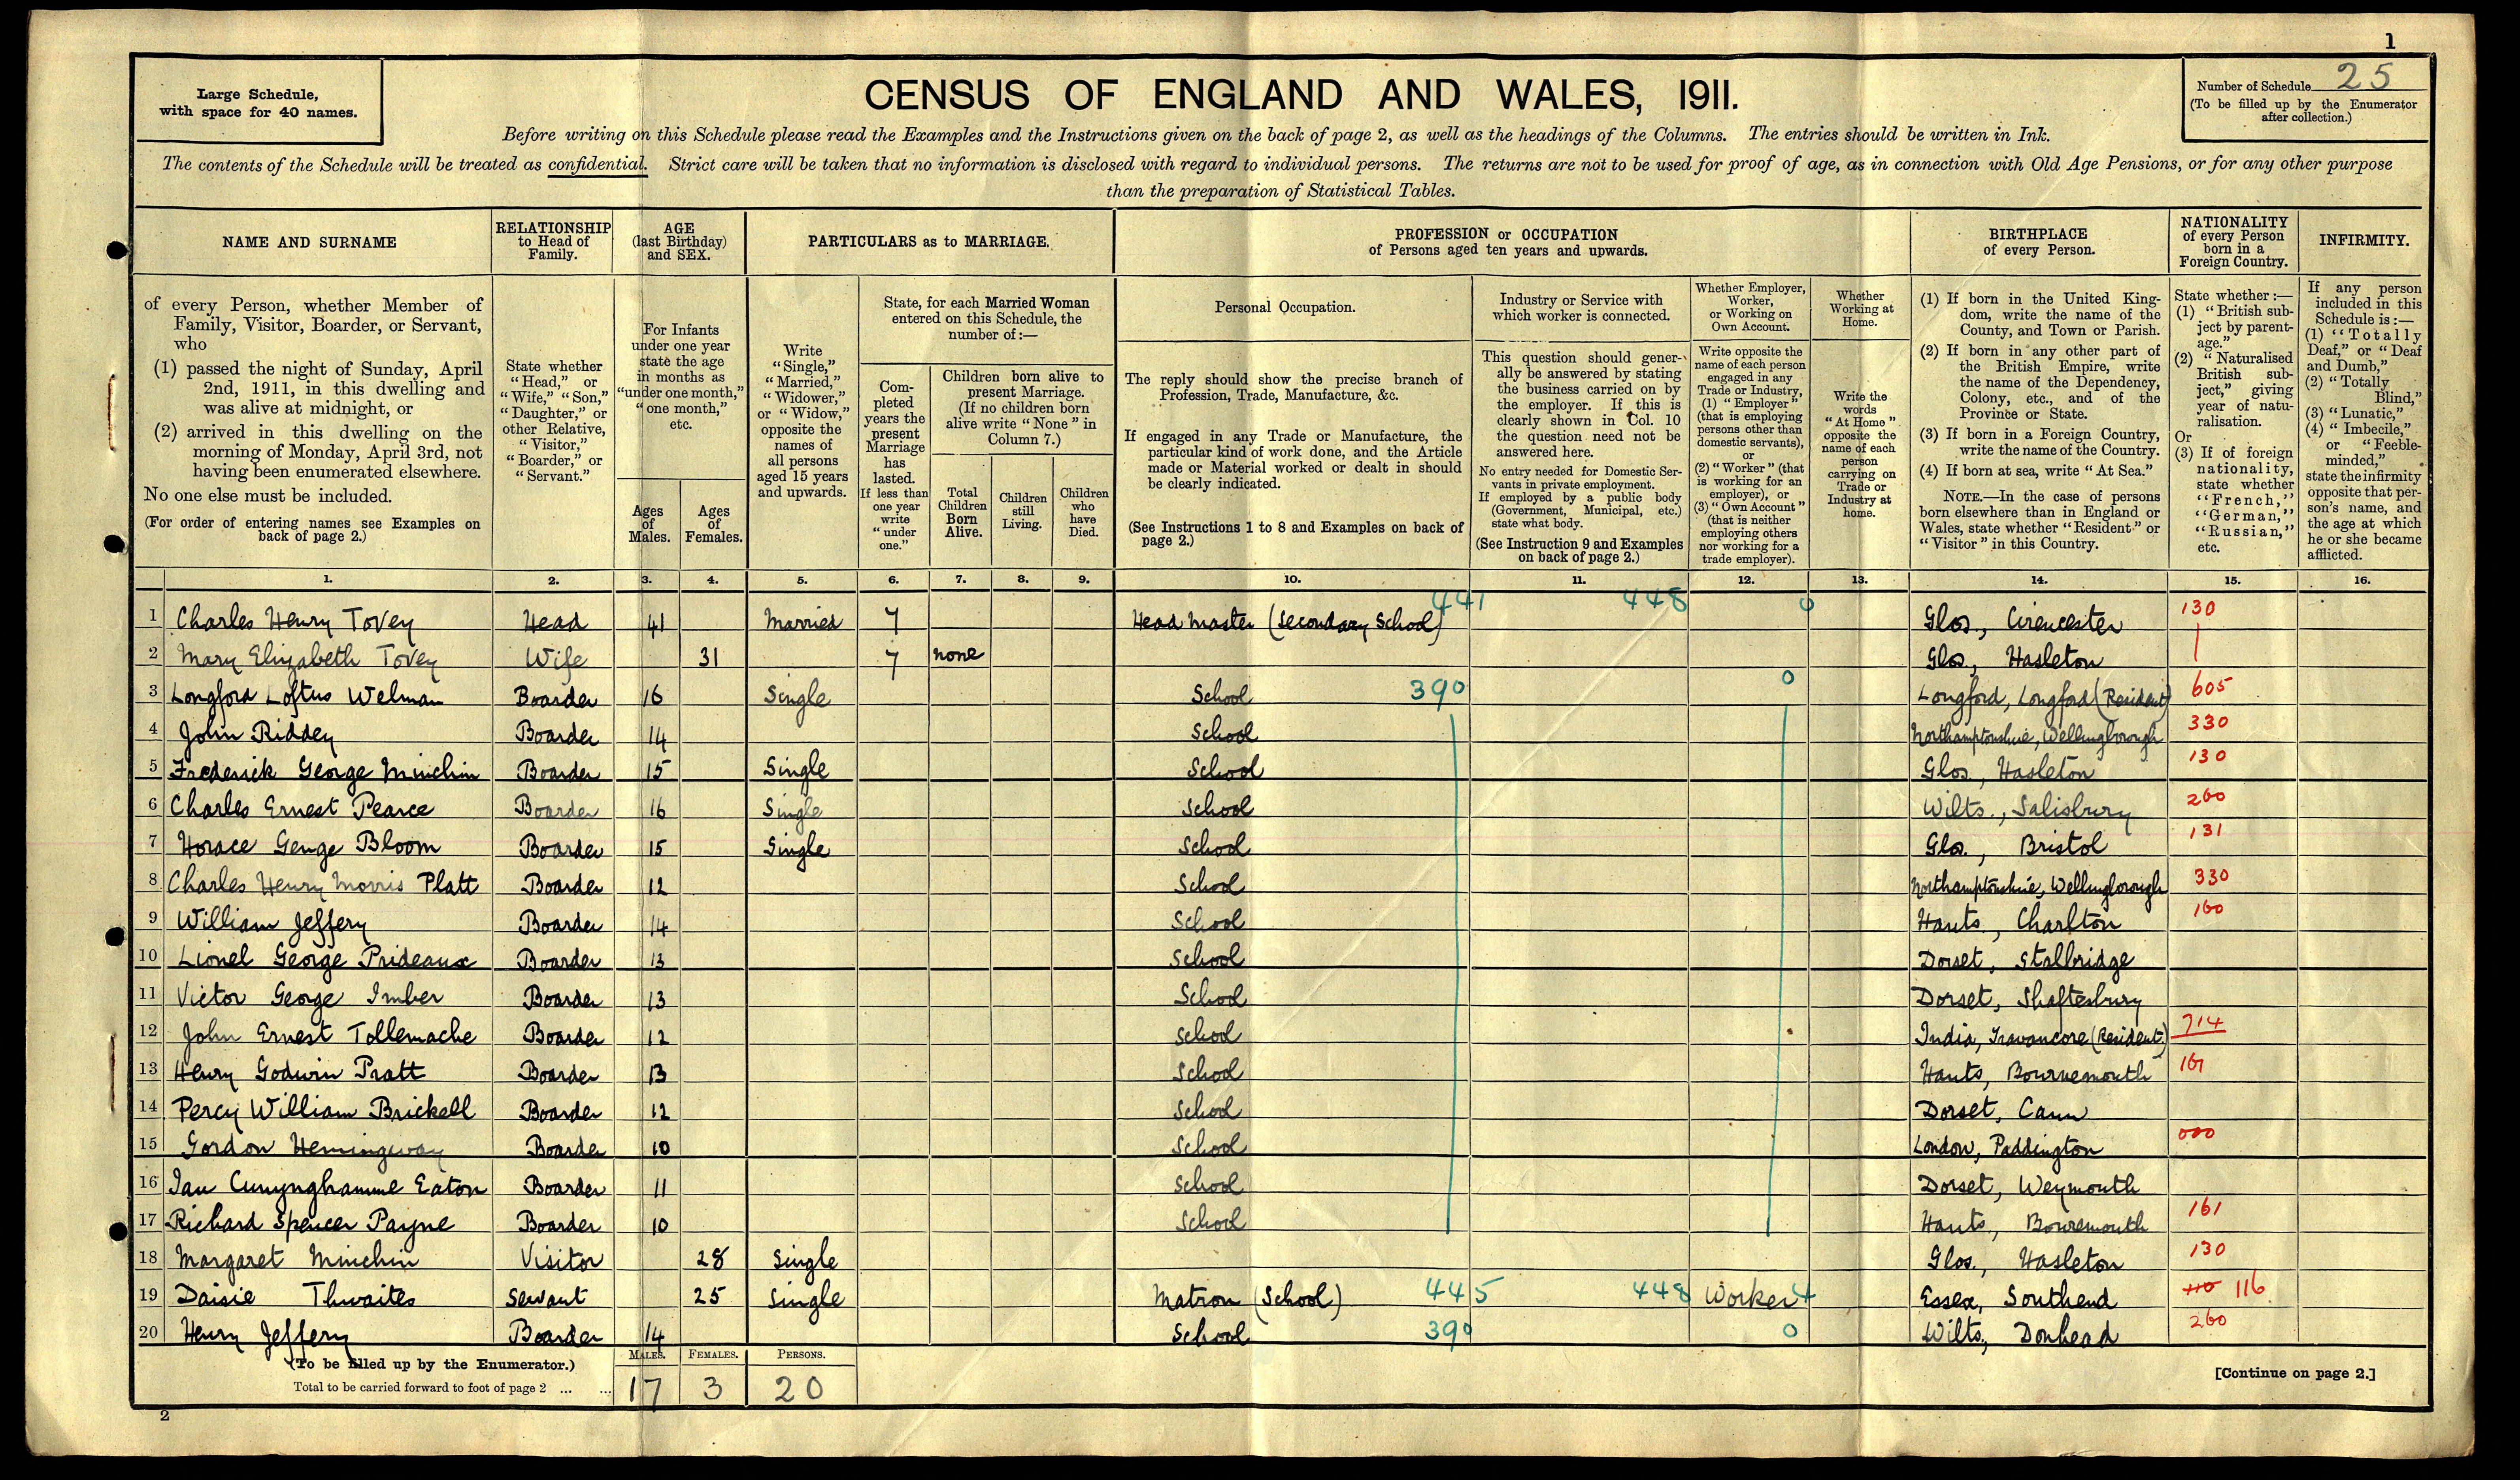 1
Large Schedule,
with space for 40 names.
CENSUS OF ENGLAND AND WALES, 1911.
Number of Schedule 25
(To be filled up by the Enumerator
after collection.)
Before writing on this Schedule please read the Examples and the Instructions given on the back of page 2, as well as the headings of the Columns. The entries should be written in Ink.
The contents of the Schedule will be treated as confidential. Strict care will be taken that no information is disclosed with regard to individual persons. The returns are not to be used for proof of age, as in connection with Old Age Pensions, or for any other purpose
than the preparation of Statistical Tables.
NAME AND SURNAME
of every Person, whether Member of
Family, Visitor, Boarder, or Servant,
who
(1) passed the night of Sunday, April
2nd, 1911, in this dwelling and
was alive at midnight, or
(2) arrived in this dwelling on the
morning of Monday, April 3rd, not
having been enumerated elsewhere.
No one else must be included.
(For order of entering names see Examples on
back of page 2.)
RELATIONSHIP
to Head of
Family.
State whether
"Head," or
"Wife," "Son,"
"Daughter," or
other Relative,
"Visitor,"
"Boarder," or
"Servant."
AGE
(last Birthday)
and SEX.
For Infants
under one year
state the age
in months as
"under one month,"
"one month,"
etc.
Ages
of
Males.
Ages
of
Females.
PARTICULARS as to MARRIAGE.
Write
"Single,"
"Married,"
"Widower,"
or "Widow,"
opposite the
names of
all persons
aged 15 years
and upwards.
State, for each Married Woman
entered on this Schedule, the
number of:—
Com-
pleted
years the
present
Marriage
has
lasted.
If less than
one year
write
"under
one."
Children born alive to
present Marriage.
(If no children born
alive write "None" in
Column 7.)
Total
Children
Born
Alive.
Children
still
Living.
Children
who
have
Died.
PROFESSION or OCCUPATION
of Persons aged ten years and upwards.
Personal Occupation.
The reply should show the precise branch of
Profession, Trade, Manufacture, &c.
If engaged in any Trade or Manufacture, the
particular kind of work done, and the Article
made or Material worked or dealt in should
be clearly indicated.
(See Instructions 1 to 8 and Examples on back of
page 2.)
Industry or Service with
which worker is connected.
This question should gener-
ally be answered by stating
the business carried on by
the employer. If this is
clearly shown in Col. 10
the question need not be
answered here.
No entry needed for Domestic Ser-
vants in private employment.
If employed by a public body
(Government, Municipal, etc.)
state what body.
(See Instruction 9 and Examples
on back of page 2.)
Whether Employer,
Worker,
or Working on
Own Account.
Write opposite the
name of each person
engaged in any
Trade or Industry,
(1) "Employer"
(that is employing
persons other than
domestic servants),
or
(2) "Worker" (that
is working for an
employer), or
(3) "Own Account"
(that is neither
employing others
nor working for a
trade employer).
Whether
Working at
Home.
Write the
words
"At Home"
opposite the
name of each
person
carrying on
Trade or
Industry at
home.
BIRTHPLACE
of every Person.
(1) If born in the United King-
dom, write the name of the
County, and Town or Parish.
(2) If born in any other part of
the British Empire, write
the name of the Dependency,
Colony, etc., and of the
Province or State.
(3) If born in a Foreign Country,
write the name of the Country.
(4) If born at sea, write "At Sea."
NOTE.—In the case of persons
born elsewhere than in England or
Wales, state whether "Resident" or
"Visitor" in this Country.
NATIONALITY
of every Person
born in a
Foreign Country.
State whether :—
(1) "British sub-
ject by parent-
age."
(2) "Naturalised
British sub-
ject," giving
year of natu-
ralisation.
Or
(3) If of foreign
nationality,
state whether
"French,"
"German,"
"Russian,"
etc.
INFIRMITY.
If any person
included in this
Schedule is:—
(1) "Totally
Deaf," or "Deaf
and Dumb,"
(2) "Totally
Blind,"
(3) "Lunatic,"
(4) "Imbecile,"
or "Feeble-
minded,"
state the infirmity
opposite that per-
son's name, and
the age at which
he or she became
afflicted.
1. 2. 3. 4. 5. 6. 7. 8. 9. 10. 11. 12. 13. 14. 15. 16.
1 Charles Henry Tovey Head 41 Married 7 Head Master (Secondary School) 441 448 0 Glos., Cirencester 130
2 Mary Elizabeth Tovey Wife 31 7 none Glos., Hasleton
3 Longford Loftus Welman Boarder 16 Single School 390 0 Longford, Longford (Resident) 605
4 John Riddey Boarder 14 School Northamptonshire, Wellingborough 330
5 Frederick George Minchin Boarder 15 Single School Glos., Hasleton 130
6 Charles Ernest Pearce Boarder 16 Single School Wilts., Salisbury 260
7 Horace George Bloom Boarder 15 Single School Glos., Bristol 131
8 Charles Henry Morris Platt Boarder 12 School Northamptonshire, Wellingborough 330
9 William Jeffery Boarder 14 School Hants, Charlton 160
10 Lionel George Prideaux Boarder 13 School Dorset, Stalbridge
11 Victor George Imber Boarder 13 School Dorset, Shaftesbury
12 John Ernest Tollemache Boarder 12 School India, Travancore (Resident) 714
13 Henry Godwin Pratt Boarder 13 School Hants, Bournemouth 161
14 Percy William Brickell Boarder 12 School Dorset, Cann
15 Gordon Hemingway Boarder 10 School London, Paddington 000
16 Ian Cunynghamme Eaton Boarder 11 School Dorset, Weymouth
17 Richard Spencer Payne Boarder 10 School Hants, Bouremouth 161
18 Margaret Minchin Visitor 28 Single Glos., Hasleton 130
19 Daisie Thwaites Servant 25 Single Matron (School) 445 448 Worker 4 Essex, Southend 110 116
20 Henry Jeffery Boarder 14 School 390 0 Wilts, Donhead 260
(To be filled up by the Enumerator.)
Total to be carried forward to foot of page 2 ... ...
MALES. FEMALES. PERSONS.
17 3 20
[Continue on page 2.]
2